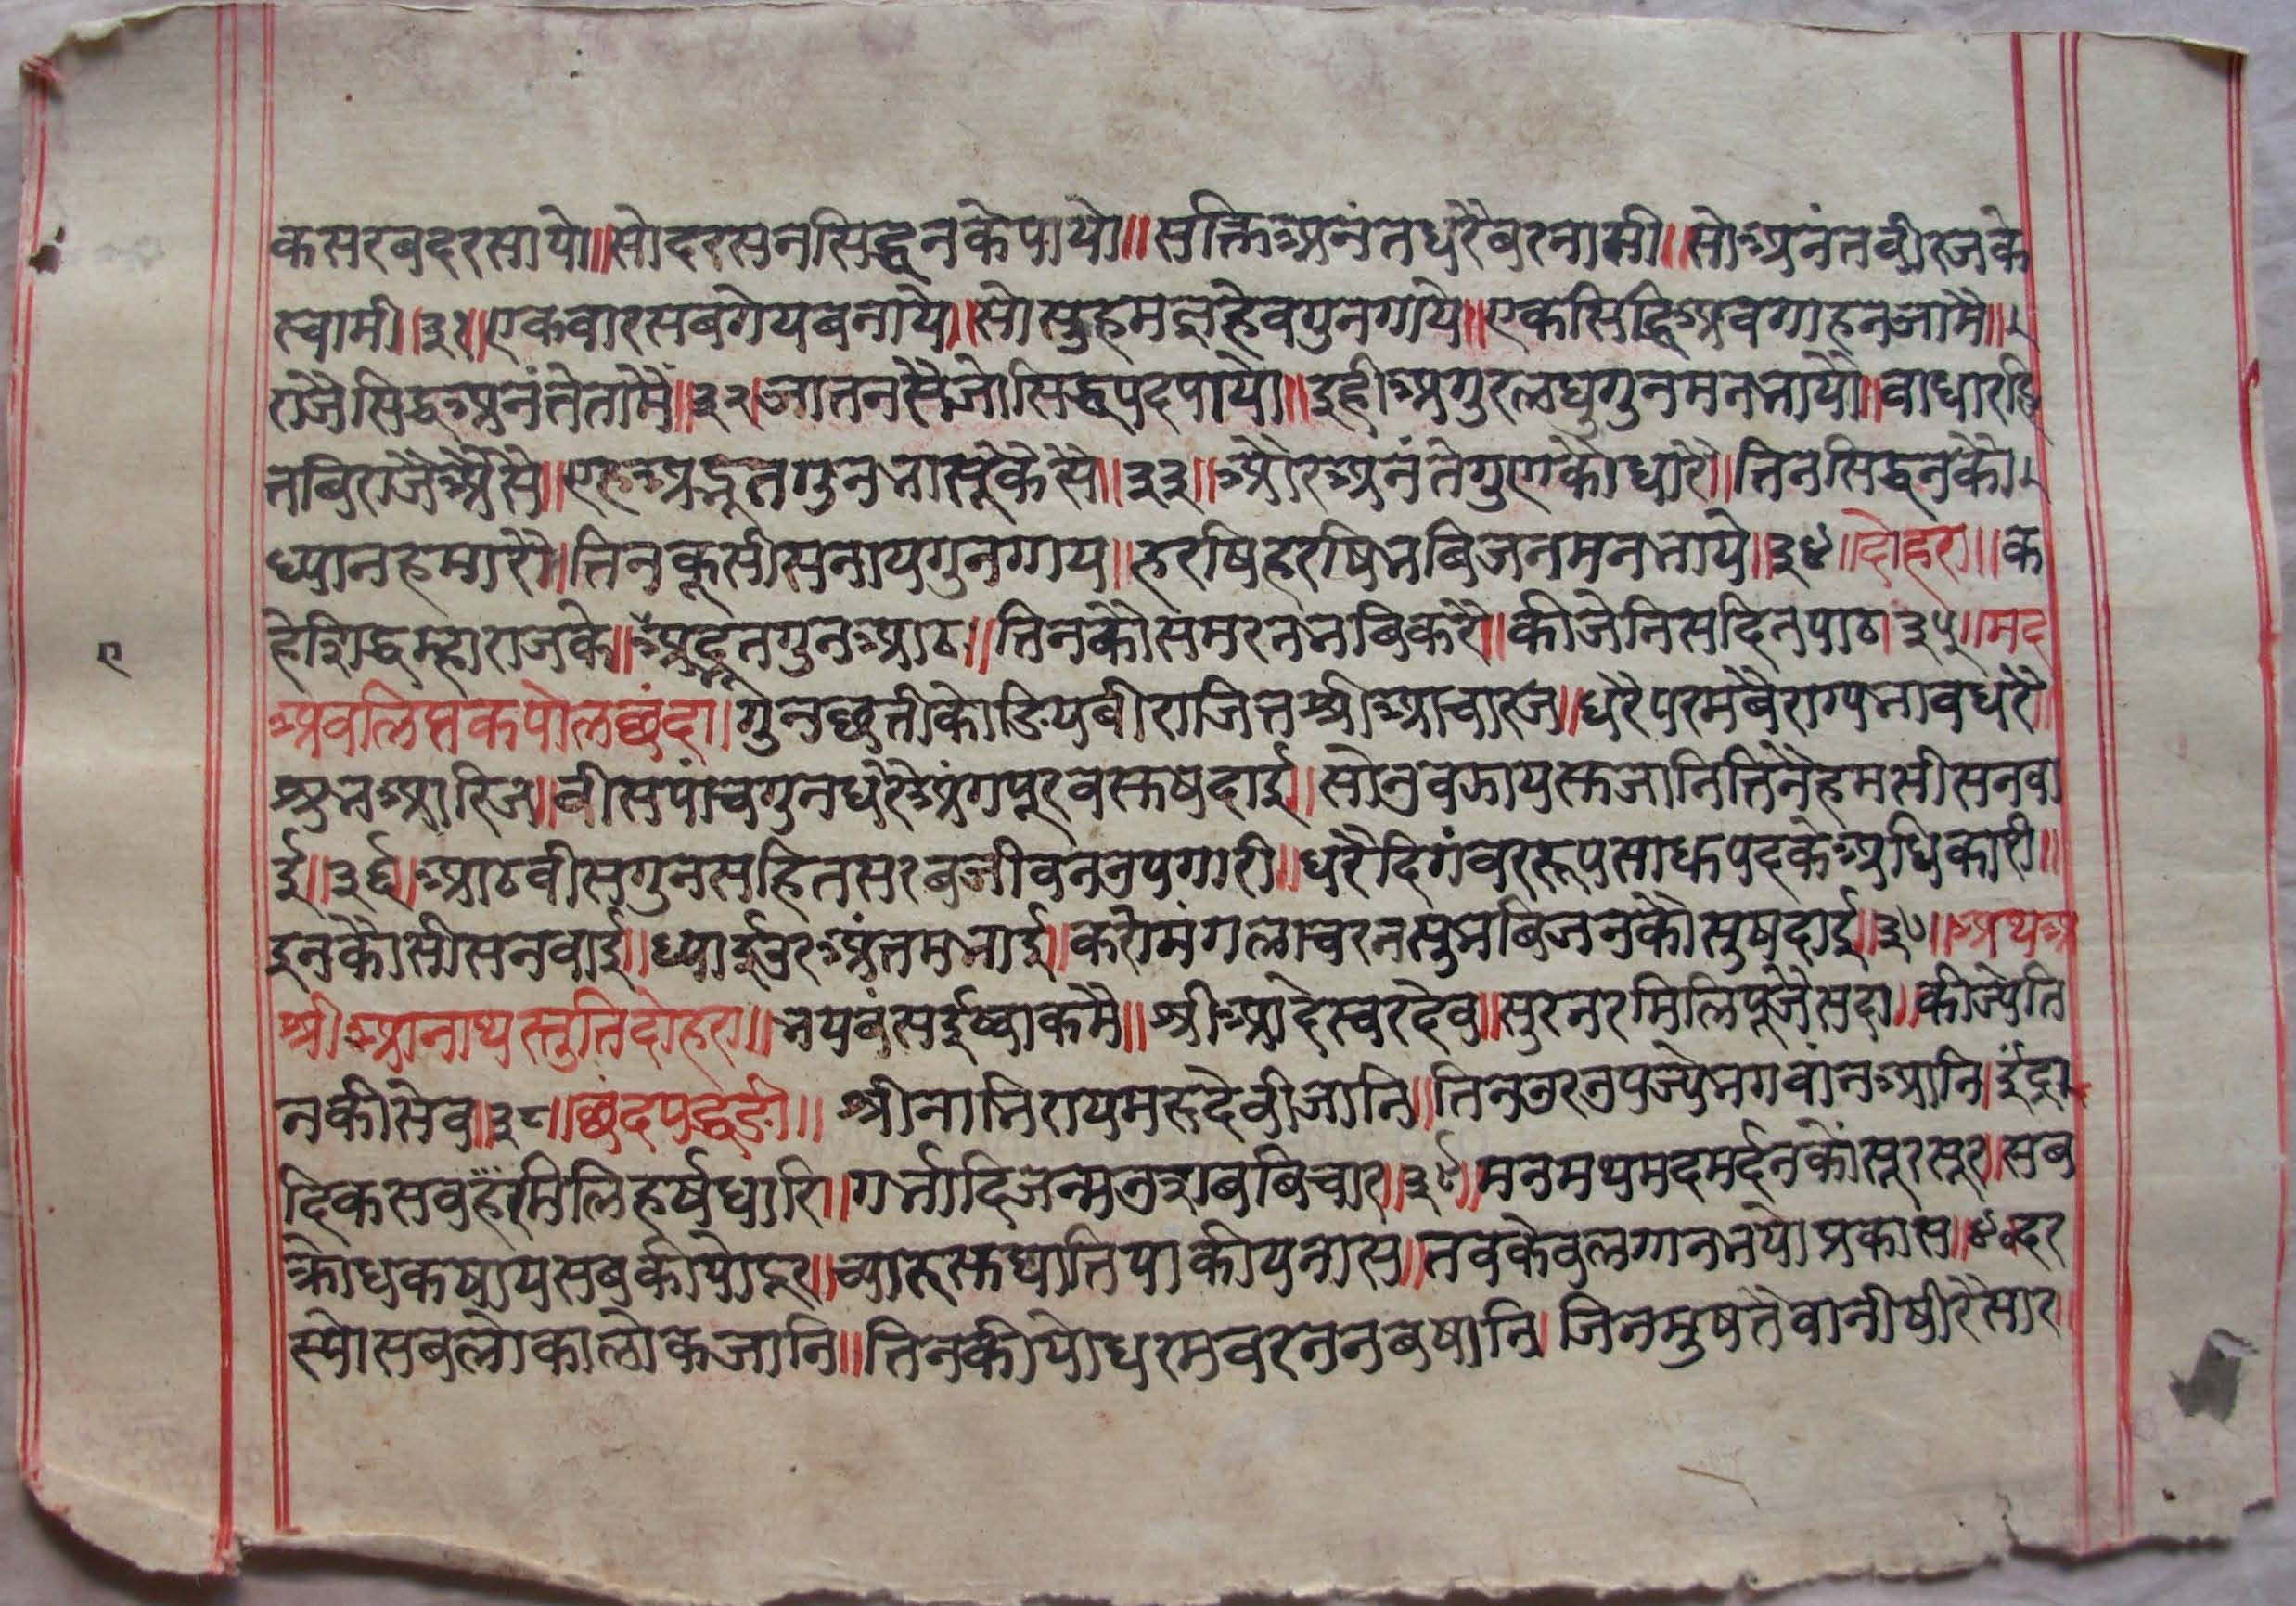 कसरबदरसायो॥सोदरसनसिद्धनकेपायो॥सक्तिअनंतधरैबरनामी॥सोअनंतवीरजके
स्वामी॥३१॥एकवारसबगेयबनाये॥सोसुहमन्नहेवगुनगाये॥एकसिद्धिअवगाहनजामै॥
राजैसिद्धअनंतेतामैं॥३२॥जातनसैजोसिद्धपदपायो॥इहीअगुरलघुगुनमनभायौ॥वाधारहि
नबिराजैअैसे॥एहअद्भूतगुनभासूकैसै॥३३॥औरअनंतेगुणकौधारै॥तिनसिद्धनकौ
ध्यानहमारौ॥तिनकूसीसनायगुनगाय॥हरषिहरषिभबिजनमनभाये॥३४॥दोहरा॥क
हेशिद्धम्हाराजके॥अद्भूतगुनआठ॥तिनकौसमरनभबिकरै॥कीजेनिसदिनपाठ॥३५॥मद
अवलिप्तकपोलछंदा॥गुनछत्तीकोडियबीराजितश्रीआचारज॥धरैपरमबैराग्यभावधरै॥
श्रुभआरिज॥वीसपांचगुनधरैअंगपूरवस्तषदाई॥सोउवझायस्तजानितिनैहमसीसनवा
ई॥३६॥आठवीसगुनसहितसरबजीवनउपगारी॥धरैदिगंवररूपसाधपदकेअधिकारी॥
इनकौसीसनवाई॥ध्याईउरअंतमभाई॥करोमंगलाचरनसुभबिजनकौसुषदाई॥३७॥अथअ
श्रीआनाथस्तुतिदोहरा॥भयबंसईष्वाकमै॥श्रीआदेस्वरदेव॥सुरनरमिलिपूजैसदा॥कीज्येति
नकीसेव॥३८॥छंदपद्धडी॥श्रीनाभिरायमरूदेवीजानि॥तिनउरउपज्येभगवांनआनि॥ईंद्रा
दिकसवहरमिलिहर्षधारि॥गर्भादिजन्मउशबबिचार॥३९॥मनमथमदमर्दनकोंसूरसूर॥सब
क्रोधकषायसबकीयोदूर॥च्यारूस्तघातियाकीयनास॥तवकेवलग्यनभयोप्रकास॥४०॥दर
स्योसबलोकालोकजानि॥तिनकीयोधरमवरननबषानि॥जिनमुषतैवानीषीरैसार
९